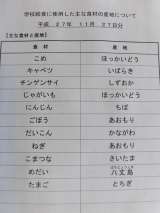 学校給食に使用した主な食材の産地について
平成 27年 11月 27日分
【主な食材と産地】
食材 産地
こめ ほっかいどう
キャベツ いばらき
チンゲンサイ しずおか
じゃがいも ほっかいどう
にんじん ちば
ごぼう あおもり
だいこん かながわ
ねぎ あおもり
こまつな さいたま
めだい 八丈島
たまご とちぎ